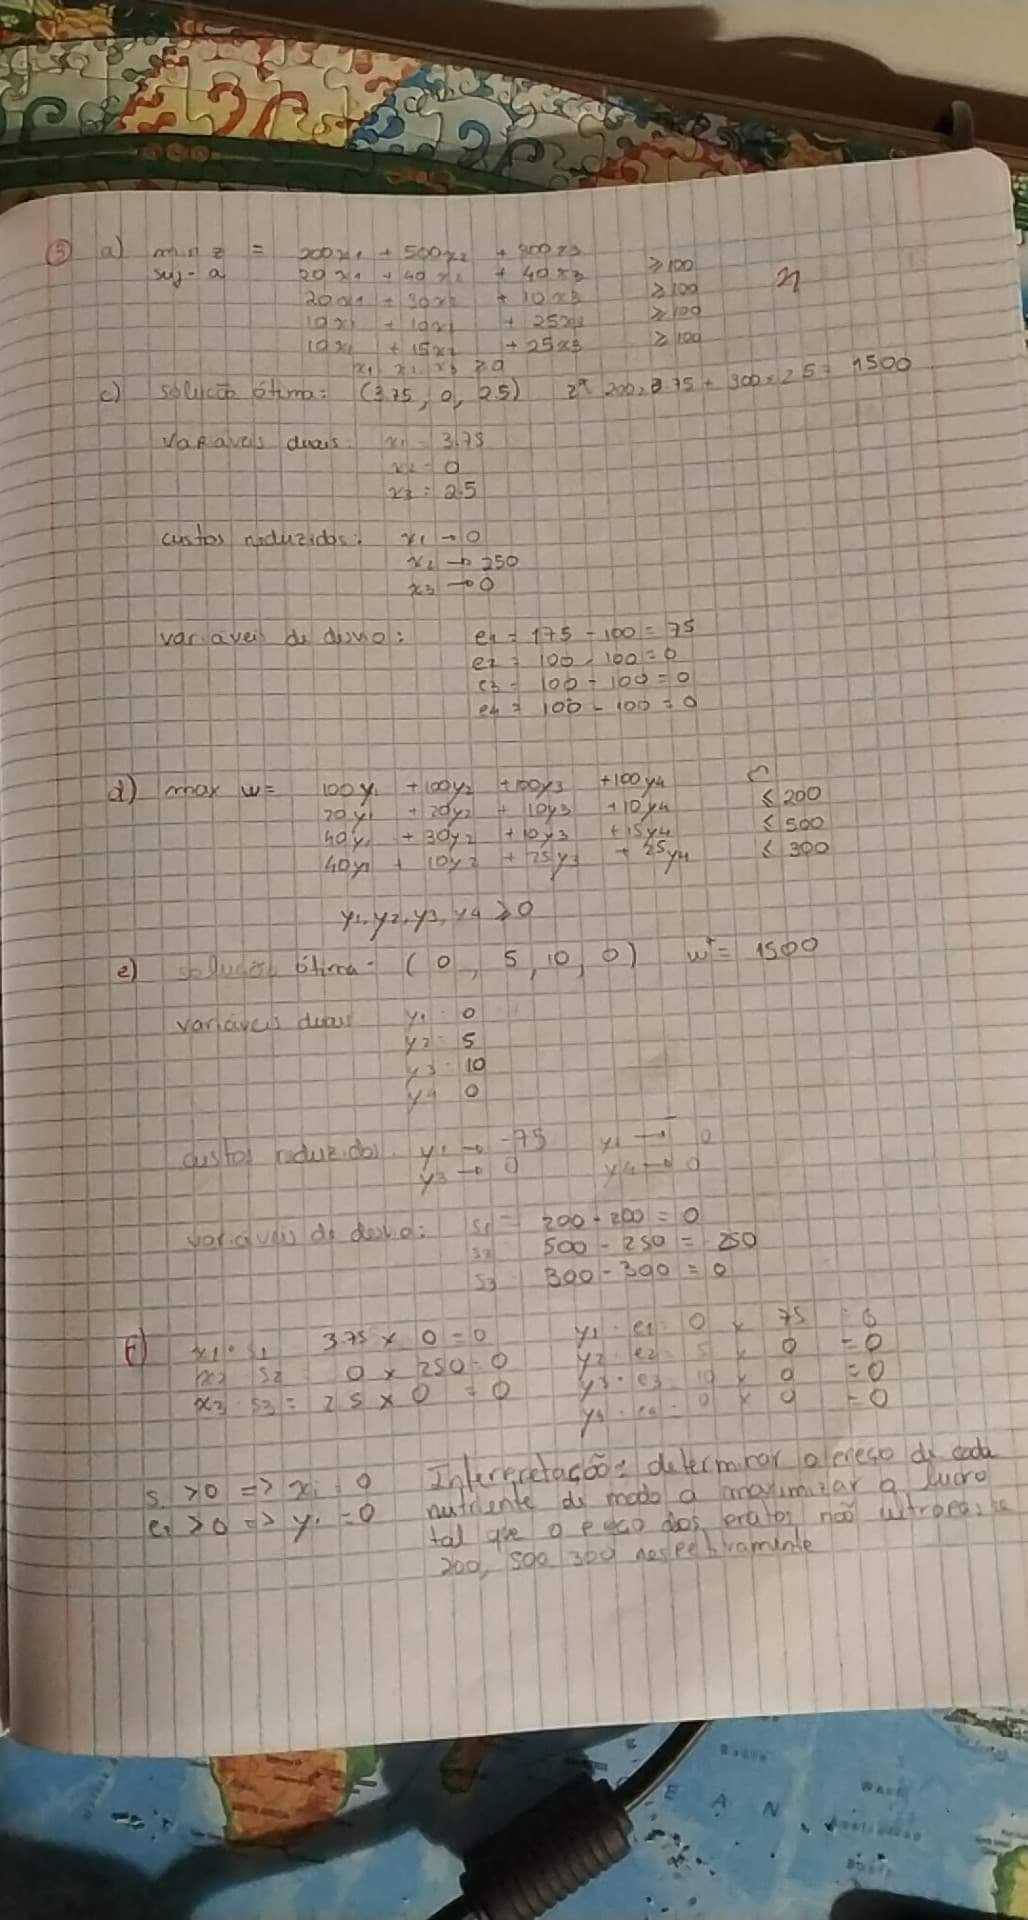 5) a) min z = 200x1 + 500x2 + 300x3
suj. a 20x1 + 40x2 + 40x3 ≥100
20x1 + 30x2 + 10x3 ≥100
10x1 + 10x2 + 25x3 ≥100
10x1 + 15x2 + 25x3 ≥100
x1 x2 x3 ≥0
c) solução ótima: (3.75, 0, 2.5) z* 200×3.75 + 300×2.5 = 1500
variáveis duais: x1 = 3.75
x2 = 0
x3 = 2.5
custos reduzidos: x1 → 0
x2 → 250
x3 → 0
variáveis de desvio: e1 = 175 - 100 = 75
e2 = 100 - 100 = 0
e3 = 100 - 100 = 0
e4 = 100 - 100 = 0
d) max w = 100y1 + 100y2 + 100y3 + 100y4
20y1 + 20y2 + 10y3 + 10y4 ≤ 200
40y1 + 30y2 + 10y3 + 15y4 ≤ 500
40y1 + 10y2 + 25y3 + 25y4 ≤ 300
y1, y2, y3, y4 ≥ 0
e) solução ótima = (0, 5, 10, 0) w* = 1500
variáveis duais y1 = 0
y2 = 5
y3 = 10
y4 0
custos reduzidos. y1 → -75 y2 → 0
y3 → 0 y4 → 0
variáveis de desvio: s1 = 200 - 200 = 0
s2 500 - 250 = 250
s3 300 - 300 = 0
f) x1 · s1 3.75 × 0 = 0 y1 · e1 = 0 × 75 = 0
x2 s2 0 × 250 = 0 y2 · e2 = 5 × 0 = 0
x3 · s3 = 2.5 × 0 = 0 y3 · e3 = 10 × 0 = 0
y4 · e4 = 0 × 0 = 0
si >0 => xi = 0 Interpretação: determinar o preço de cada
ei >0 => yi = 0 nutriente de modo a maximizar o lucro
tal que o preço dos pratos não ultrapasse
200, 500 300 respetivamente